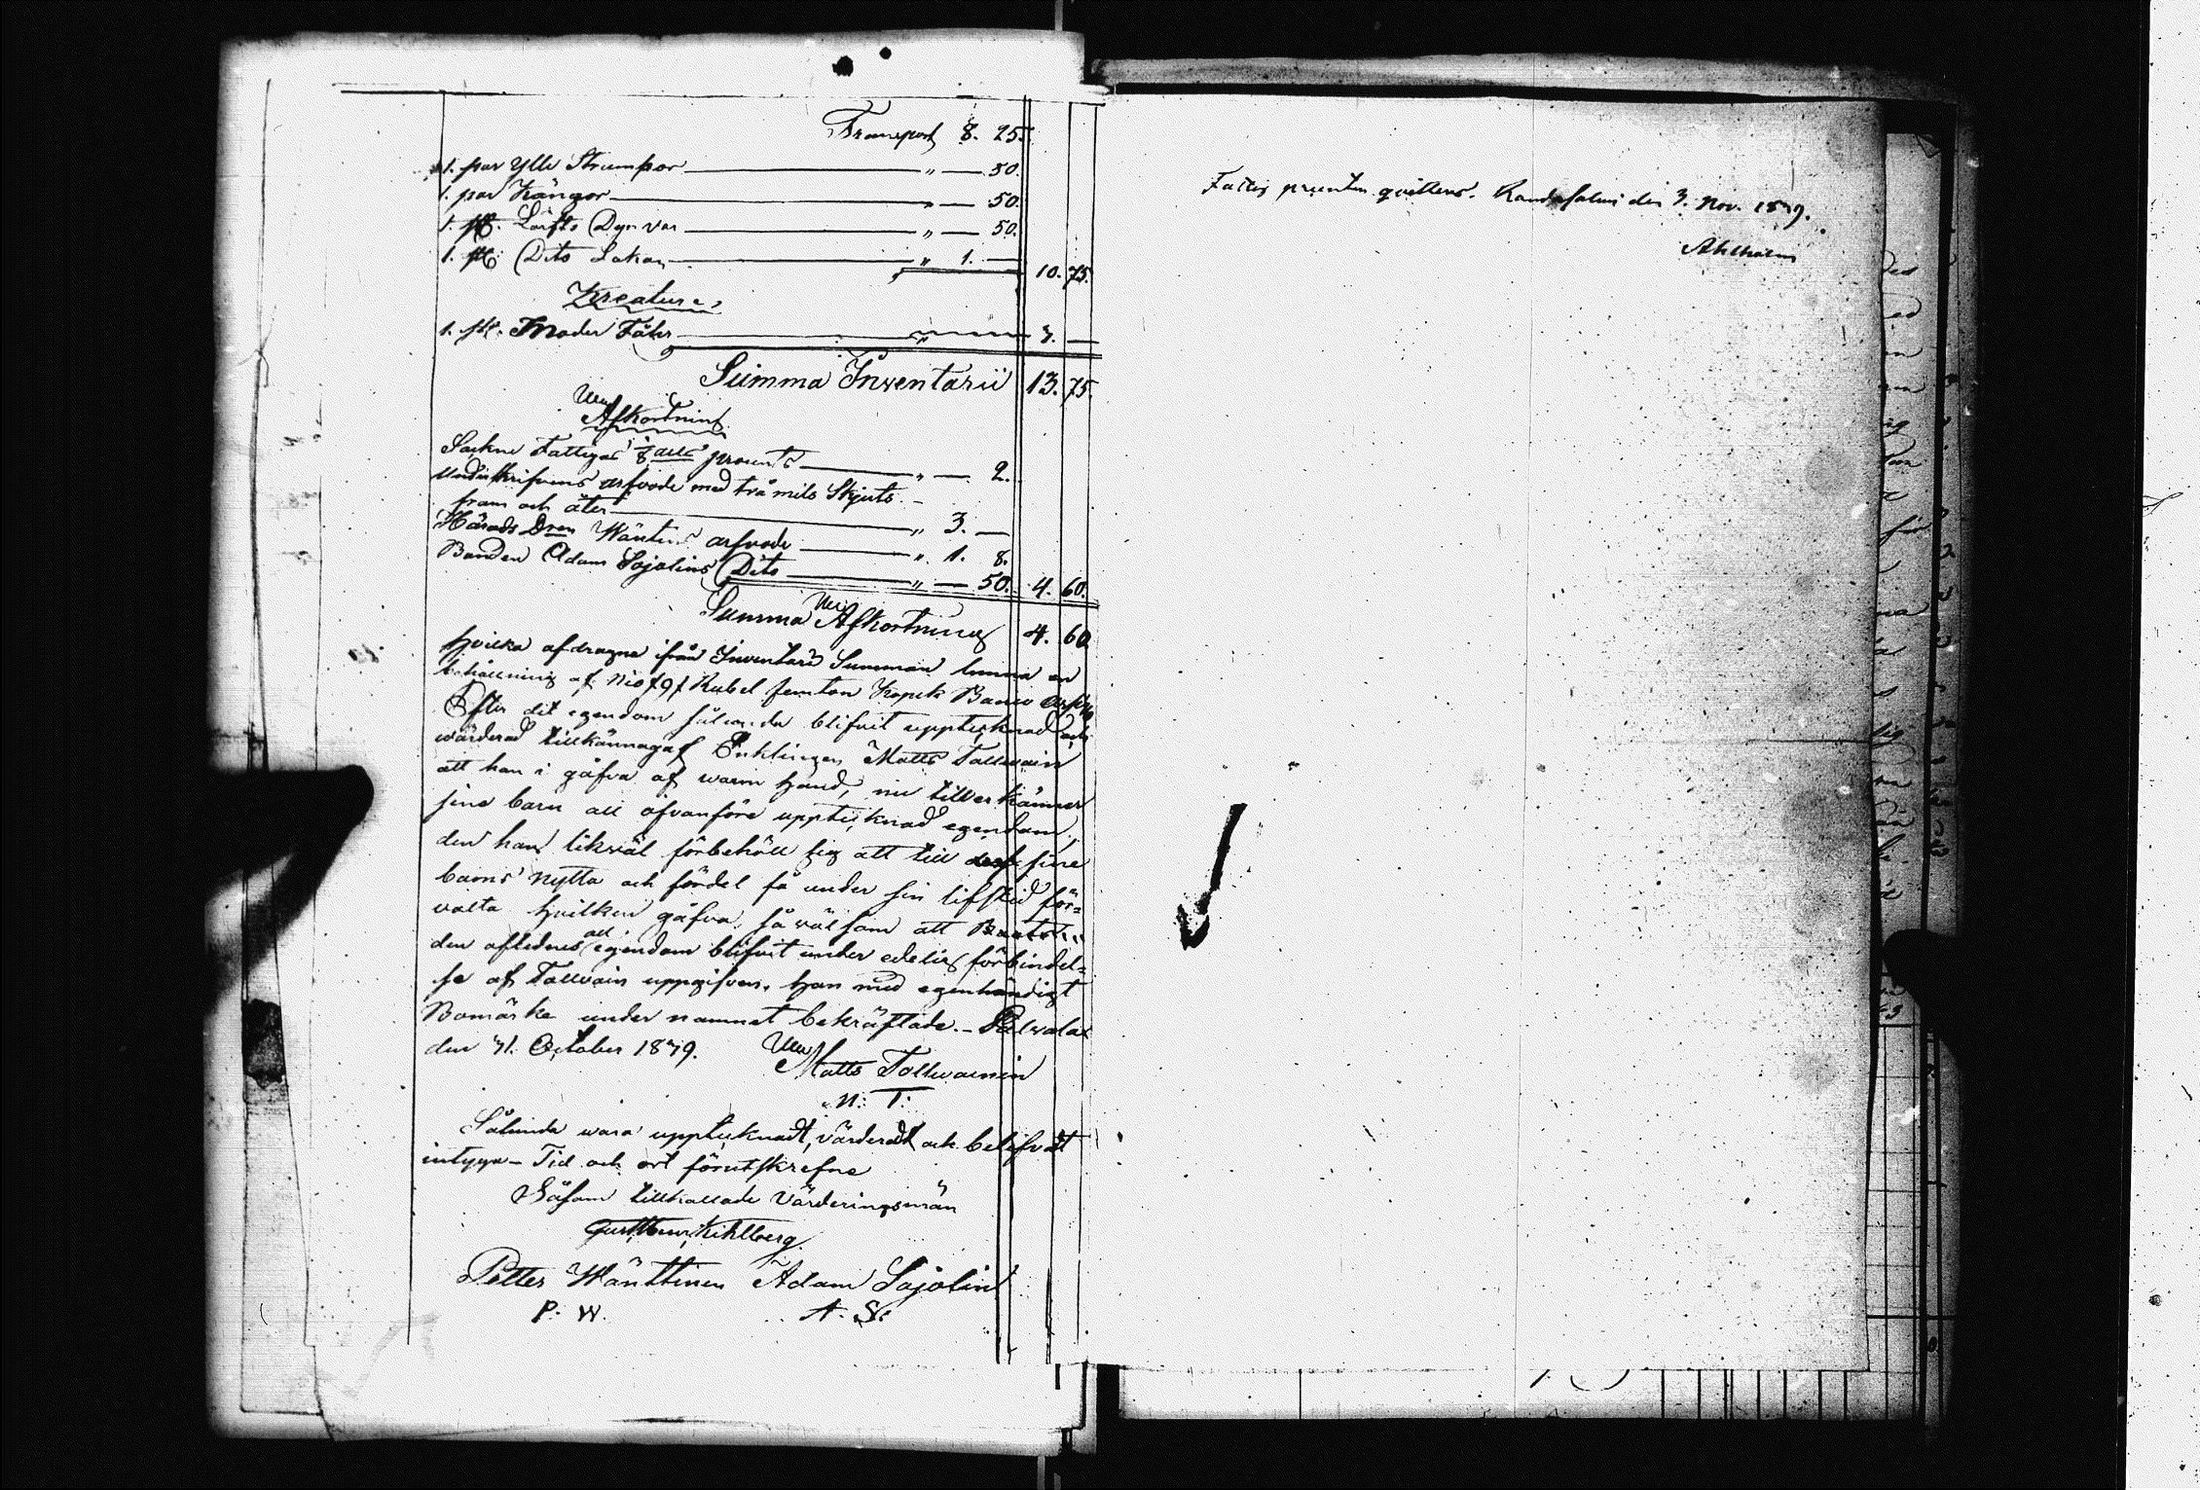 Transport 8. 25.
1. par Ylle Strumpor " — 50.
1. par Kängor " — 50.
1. st. Lärfts Dyn var " — 50.
1. st. Dito Lakan " 1. — 10. 75.
Kreatur
1. st. Moder Fåhr " 3. —
Summa Inventarii 13. 75.
Afkortning
Sockne Fattigas 1/8 dels procents " — 2.
Underskrifvens arfvode med två mils Skjuts
fram och åter " 3. —
Härads Dmen Wäntins arfvode " 1. 8.
Bonden Adam Sojolins Dito " — 50. 4. 60.
Summa Afkortning 4. 60
hvilka afdragna ifrån Inventarii Summan lemna en
behållning af Nio /9/ Rubel femton Kopek Banco
Efter det egendom sålunda blifvit upptecknad och
wärderad tillkännagaf Enklingen Matts Tallvain
att han i gåfva af warm hand, nu tillerkänner
sine barn all ofvanföre upptecknad egendom,
den han likväl förbehöll sig att till sine
barns nytta och fördel få under sin lifstid för=
valta hvilken gåfva, så väl som att
den aflednes all egendom blifvit under edelig förbindel=
se af Tallvain uppgifven, han med egenhändigt
Bomärke under namnet bekräftade. - Palvalax
den 31. October 1839.
Matts Tallvainen
N. T.
Sålunda wara upptecknadt, värderadt och belefvat
intyga - Tid och ort förutskrefne
Såsom tillkallade Värderingsmän
Kihlberg.
Petter Wänttinen Adam Sojolin
P. W. A. S.
Fattig procenten qvitteras. Randasalmi den 3. Nov. 1839.
Ahlholm